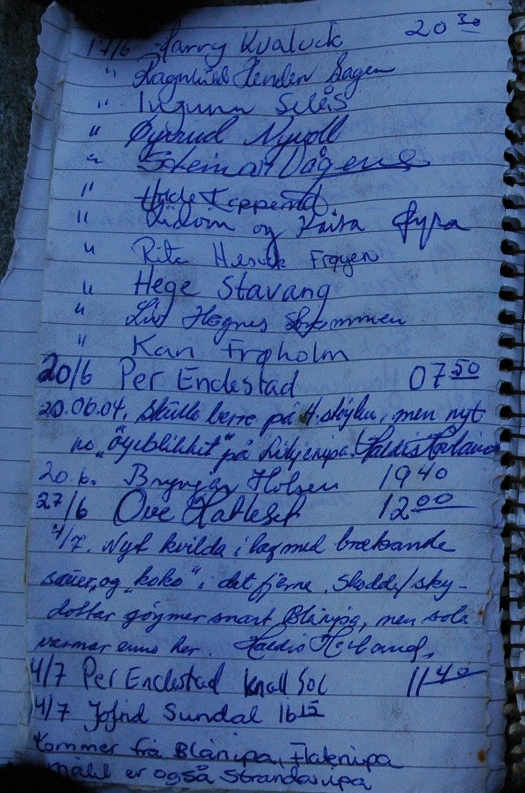 17/6 Harry Kvalvik 20 30
" Ragnhild Henden Bagen
" Ingunn Selås
" Øyvind
" Steinar Vågene
"
" og Kaira Øyra
" Rita Henvik Frøyen
" Hege Stavang
" Liv Hegnes Strømmen
" Kari Frøholm
20/6 Per Endestad 07 50
20.06.04. Skulle berre på H.støylen, men nyt
no "Øyeblikket" på Lisjenipa. Haldis Hovland
20.6. Holsen 19 40
27/6 Ove Hatleset 12 00
4/7. Nyt kvilda i lag med brekande
sauer, og "koko" i det fjerne. Skodde/sky-
dottar gøymer snart Blånipa, men sola
varmar enno her. Haldis Hovland.
4/7 Per Endestad Knall Sol 11 40
4/7 Jofrid Sundal 16 15
Kommer frå Blånipa, Flatenipa
målet er også Strandanipa